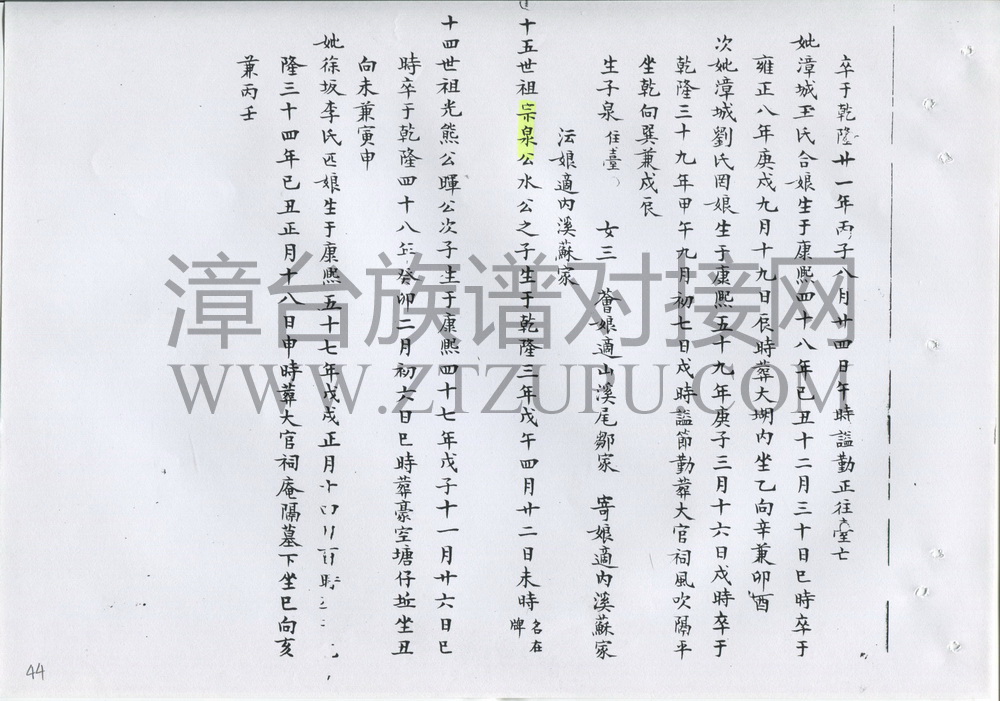 卒于乾隆廿一年丙子八月廿四日午時謚勤正往臺亡
妣漳城王氏合娘生于康熙四十八年己丑十二月三十日巳時卒于
雍正八年庚戌九月十九日辰時葬大坳内坐乙向辛兼卯酉
次妣漳城劉氏罔娘生于康熙五十九年庚子三月十六日戌時卒于
乾隆三十九年甲午九月初七日戌時謚節勤葬大官祠風吹隔平
坐乾向巽兼戍辰
生子泉 住臺 女三 薈娘適山溪尾鄒家 寄娘適内溪蘇家
沄娘適内溪蘇家
十五世祖宗泉公水公之子生于乾隆三年戊午四月廿二日未時 名在牌
十四世祖光熊公暉公次子生于康熙四十七年戊子十一月廿六日巳
時卒于乾隆四十八年癸卯二月初六日巳時葬豪空塘仔坵坐丑
向未兼寅申
妣徐坂李氏匹娘生于康熙五十七年戊戌正月十
隆三十四年己丑正月十八日申時葬大官祠庵隔墓下坐巳向亥
兼丙壬
漳台族谱对接网
WWW.ZTZUPU.COM
44